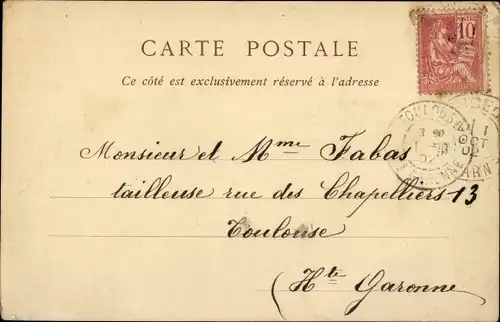 10
CARTE POSTALE
Ce côté est exclusivement réservé à l'adresse
Monsieur et Mme Fabas
tailleuse rue des Chapelliers 13
Toulouse
(Hte Garonne
TOULOUSE
OCT
02